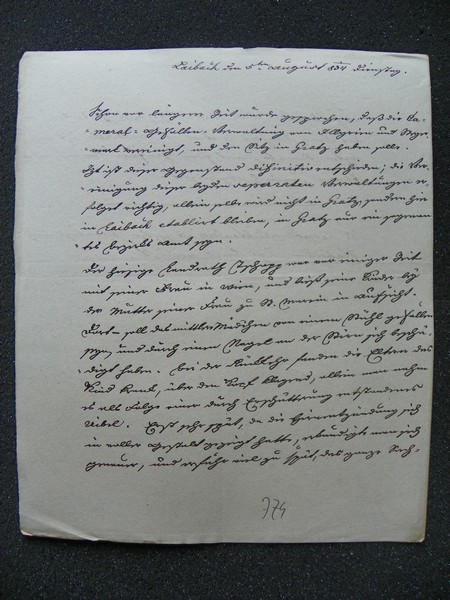 Laibach den 5ten August 834 Dienstag.
Schon vor längerer Zeit wurde gesprochen, daß die Ca-
meral-Gefällen-Verwaltung von Illyrien und Steyer-
mark vereinigt, und den Sitz in Gratz haben solle.
Jetzt ist dieser Gegenstand definitiv entschieden; die Ver-
einigung dieser beyden separaten Verwaltungen er-
folget richtig, allein selbe wird nicht in Gratz, sondern hier
in Laibach etablirt bleiben, in Gratz nur ein sogenan-
tes Bezirks Amt seyn.
Der hiesige Landrath Tschupp war vor einiger Zeit
mit seiner Frau in Wien, und ließ seine Kinder bey
der Mutter seiner Frau zu St. Marein in Aufsicht.
Dort soll das mittlere Mädchen von einem Stuhl gefallen
seyn, und durch einen Nagel an der Stirn sich beschä-
digt haben. Bei der Rückkehr fanden die Eltern das
Kind krank, über den Kopf klagend, allein man nahm
es als Folge einer durch Erschütterung entstandenes
Uebel. Erst sehr spät, da die Gehirnentzündung sich
in voller Gestalt gezeigt hatte, erkundigte man sich
genauer, und erfuhr viel zu spät, das ganze Sach-
774